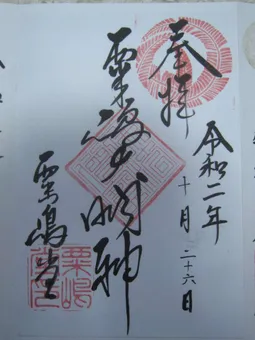 奉拝
令和二年
十月二十六日
粟嶋大明神
粟嶋堂
粟嶋